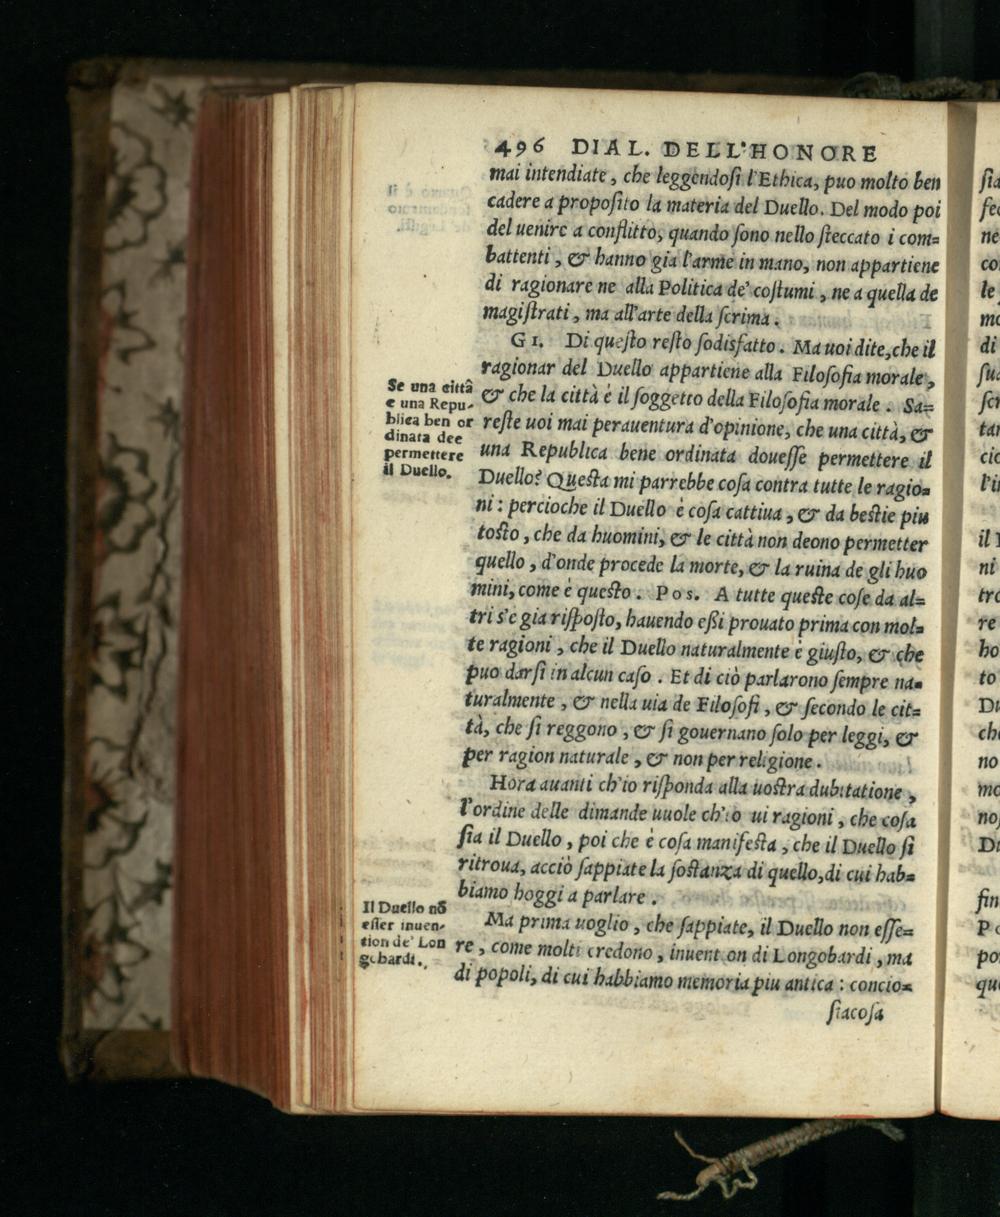 496 DIAL. DELL'HONORE
mai intendiate, che leggendoſi l'Ethica, puo molto ben
cadere a propoſito la materia del Duello. Del modo poi
del uenire a conflitto, quando ſono nello ſteccato i com=
battenti, & hanno gia l'arme in mano, non appartiene
di ragionare ne alla Politica de' coſtumi, ne a quella de
magiſtrati, ma all'arte della ſcrima.
GI. Di queſto reſto ſodisfatto. Ma uoi dite, che il
ragionar del Duello appartiene alla Filoſofia morale,
& che la città é il ſoggetto della Filoſofia morale. Sa=
reſte uoi mai perauentura d'opinione, che una città, &
una Republica bene ordinata doueſſe permettere il
Duello? Queſta mi parrebbe coſa contra tutte le ragio=
ni: percioche il Duello è coſa cattiua, & da beſtie piu
toſto, che da huomini, & le città non deono permetter
quello, d'onde procede la morte, & la ruina de gli huo
mini, come è queſto. Pos. A tutte queſte coſe da al=
tri s'è gia riſpoſto, hauendo eſſi prouato prima con mol=
te ragioni, che il Duello naturalmente è giuſto, & che
puo darſi in alcun caſo. Et di ciò parlarono ſempre na=
turalmente, & nella uia de Filoſofi, & ſecondo le cit=
tà, che ſi reggono, & ſi gouernano ſolo per leggi, &
per ragion naturale, & non per religione.
Hora auanti ch'io riſponda alla uoſtra dubitatione,
l'ordine delle dimande uuole ch'io ui ragioni, che coſa
ſia il Duello, poi che è coſa manifeſta, che il Duello ſi
ritroua, acciò ſappiate la ſoſtanza di quello, di cui hab=
biamo hoggi a parlare.
Ma prima uoglio, che ſappiate, il Duello non eſſe=
re, come molti credono, inuent on di Longobardi, ma
di popoli, di cui habbiamo memoria piu antica: concio=
ſiacoſa
Se una città
e una Repu-
blica ben or
dinata dee
permettere
il Duello.
Il Duello nõ
eſſer inuen-
tion de' Lon
gobardi.